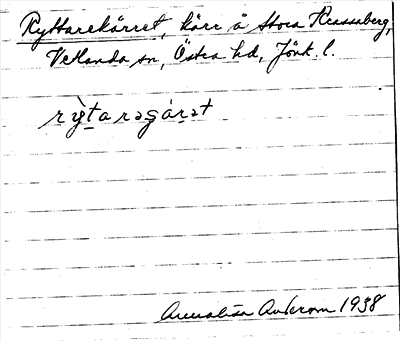 Ryttarekärret, kärr å Stora Krassaberg,
Vetlanda sn, Östra hd, Jönk. l.
rỳtarəʂárət
Annalisa Ankerom 1938